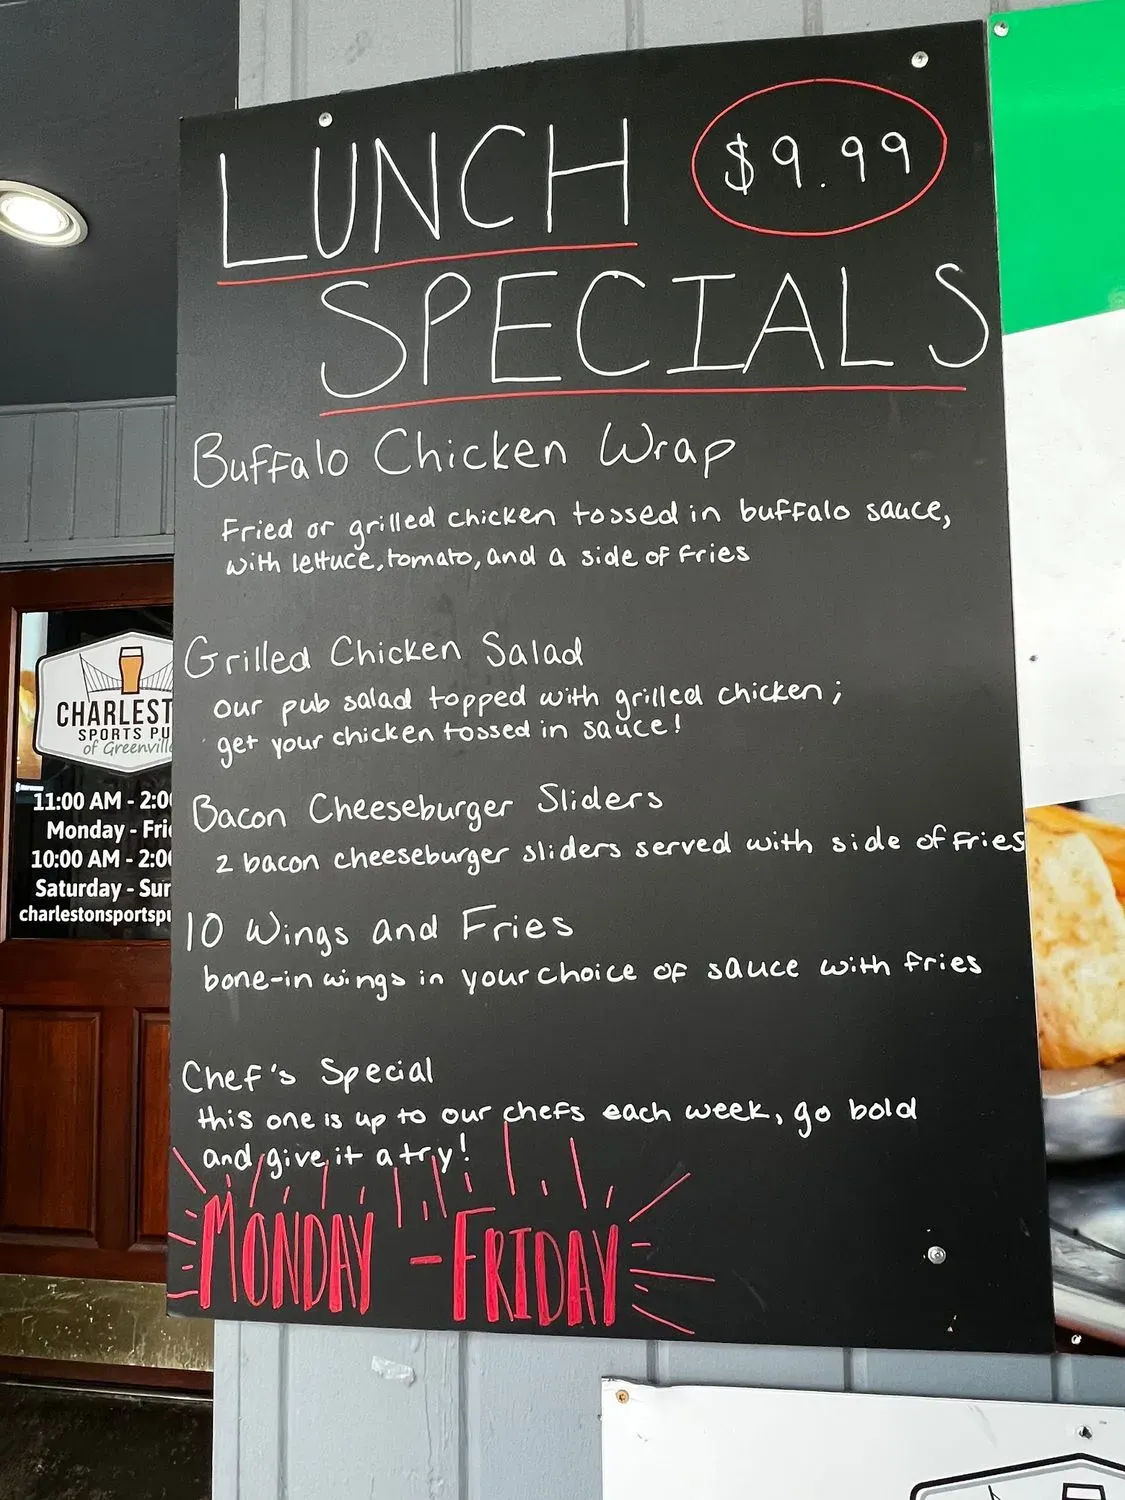 LUNCH $9.99
SPECIALS
Buffalo Chicken Wrap
Fried or grilled chicken tossed in buffalo sauce,
with lettuce, tomato, and a side of fries
Grilled Chicken Salad
our pub salad topped with grilled chicken;
get your chicken tossed in sauce!
Bacon Cheeseburger Sliders
2 bacon cheeseburger sliders served with side of fries
10 Wings and Fries
bone-in wings in your choice of sauce with fries
Chef's Special
this one is up to our chefs each week, go bold
and give it a try!
MONDAY - FRIDAY
CHARLEST
SPORTS PU
of Greenville
11:00 AM - 2:00
Monday - Fri
10:00 AM - 2:00
Saturday - Sun
charlestonsportspu